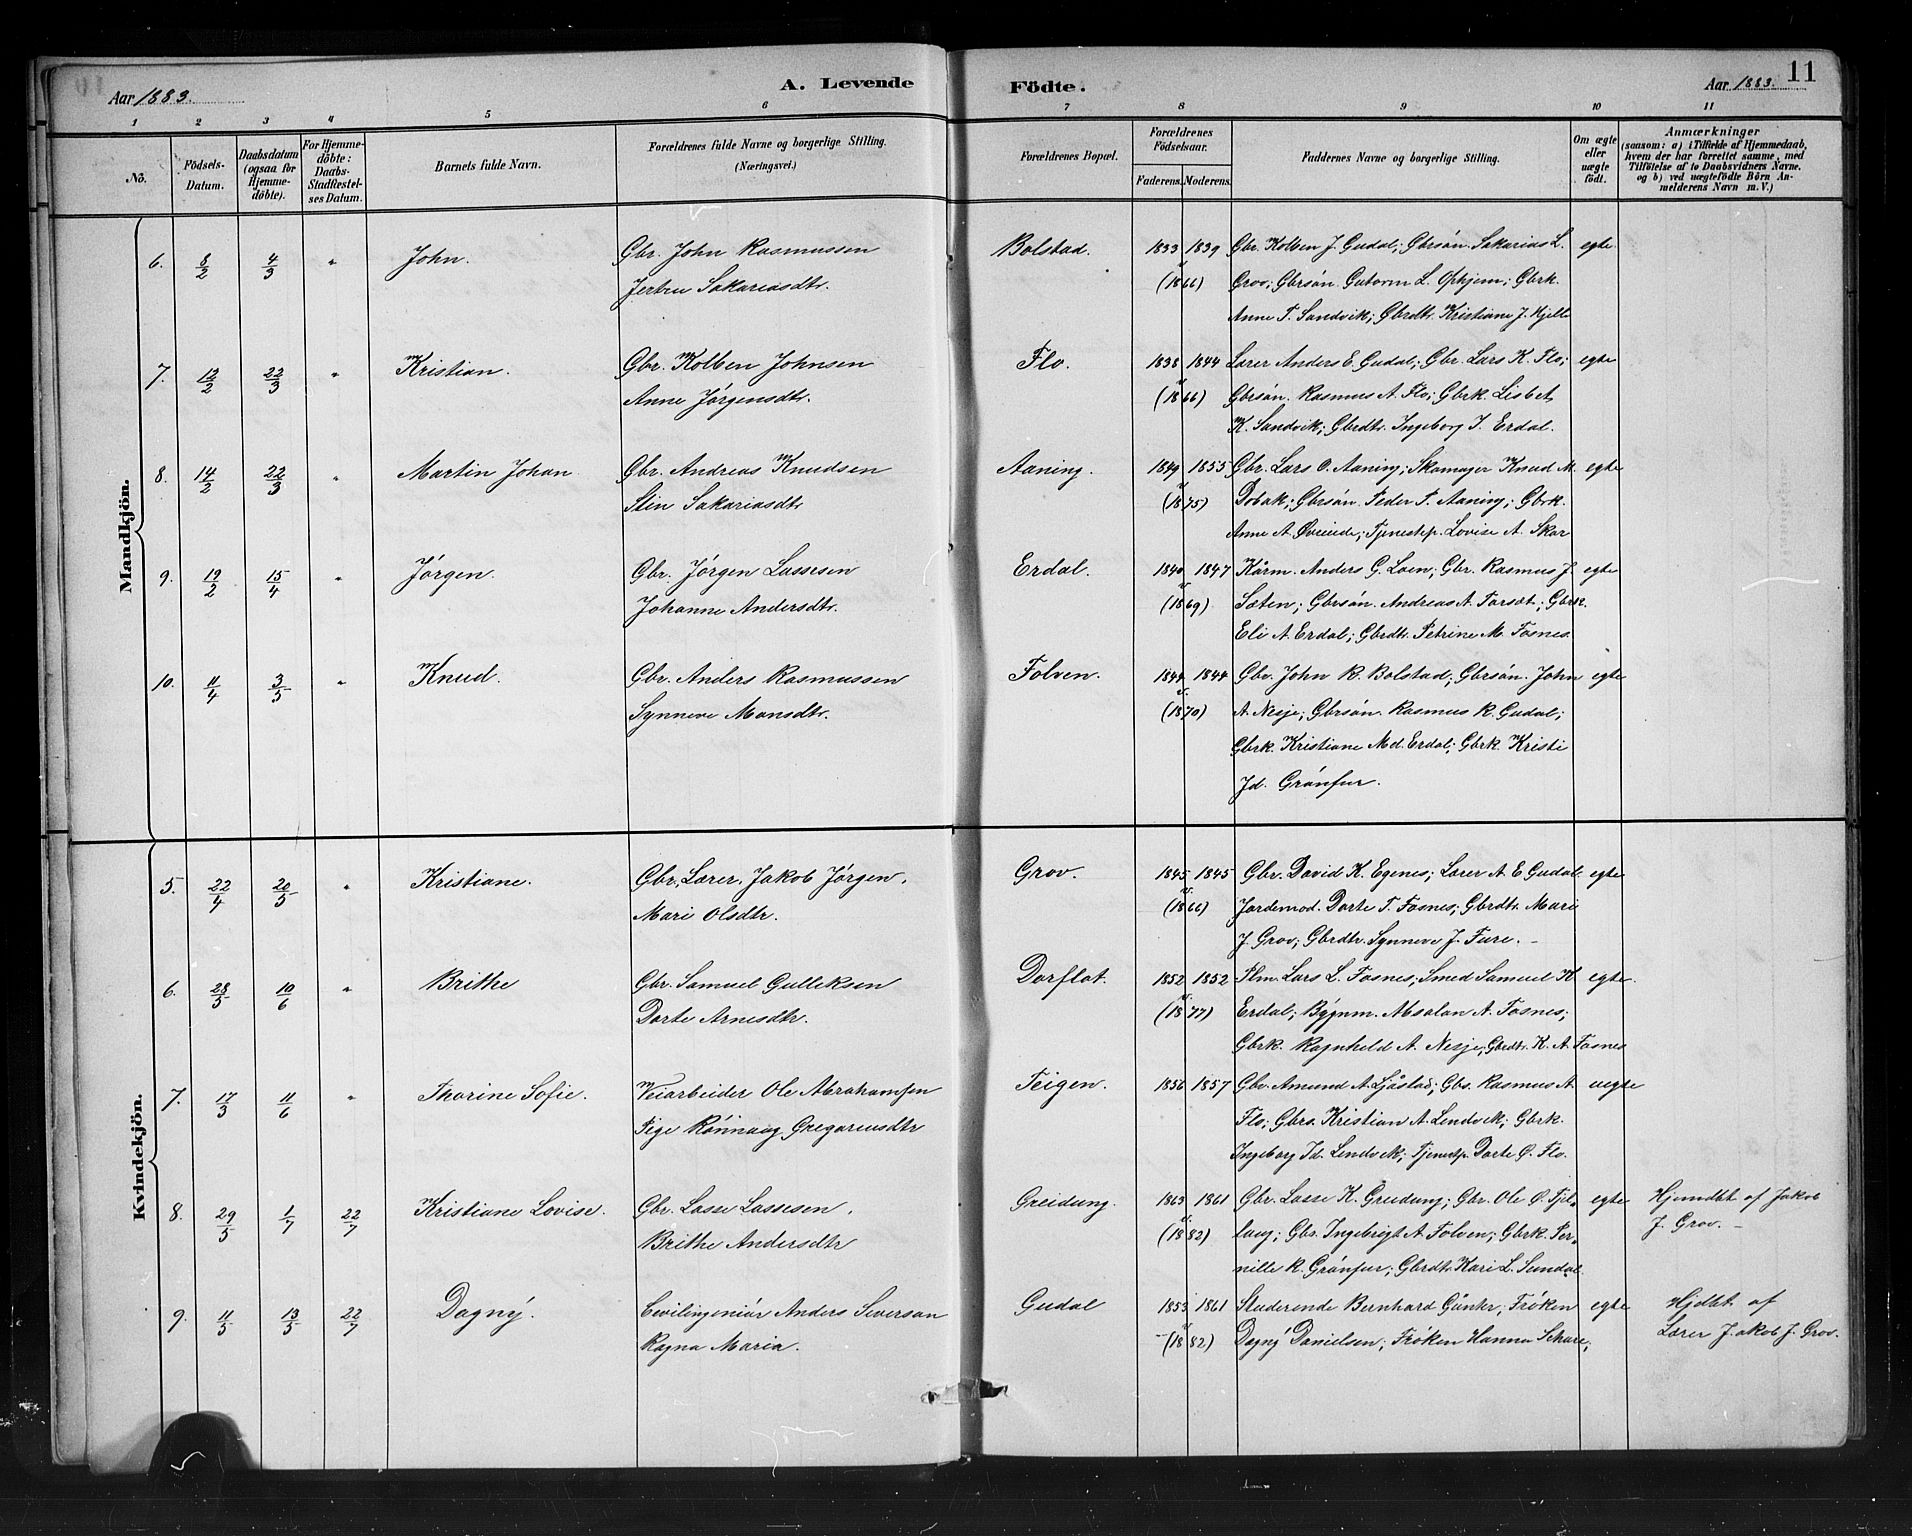 Aar 1883.
A. Levende Födte.
Aar 1883. 11
1 2 3 4 5 6 7 8 9 10 11
No.
Födsels-Datum.
Daabsdatum (ogsaa for Hjemme-döbte).
For Hjemme-döbte: Daabs-Stadfæstel-ses Datum.
Barnets fulde Navn.
Forældrenes fulde Navne og borgerlige Stilling.
(Næringsvei.)
Forældrenes Bopæl.
Forældrenes Födselsaar.
Faderens. Moderens.
Faddernes Navne og borgerlige Stilling.
Om ægte eller uægte födt.
Anmærkninger
(saasom: a) i Tilfælde af Hjemmedaab, hvem der har forrettet samme, med Tilföielse af to Daabsvidners Navne, og b) ved uægtefödte Börn Anmelderens Navn m. V.)
Mandkjön.
6. 8/2 4/3 " John. Gbr. John Rasmussen Bolstad. 1833 1839 Gbr. Kolben J. Gudal; Gbrsøn. Sakarias L. egte
Jertru Sakariasdtr. (1866) Grov; Gbrsøn. Gutorm L. Ophjem; Gbrk.
Anne T. Sandvik; Gbrdtr. Kristiane J. Hjelle
7. 12/2 22/3 " Kristian. Gbr. Kolben Johnsen Flo. 1838 1844 Lærer Anders E. Gudal; Gbr. Lars K. Flo; egte
Anne Jørgensdtr. (1866) Gbrsøn. Rasmus A. Flo; Gbrk. Lisbet
K. Sandvik; Gbrdtr. Ingeborg J. Erdal.
8. 14/2 22/3 " Martin Johan Gbr. Andreas Knudsen Aaning. 1849 1855 Gbr. Lars O. Aaning; Skomager Knud M. egte
Stin Sakariasdtr (1875) Dobak; Gbrsøn. Peder P. Aaning; Gbrk.
Anne A. Øvreeide; Tjenestep. Lovise A. Skar
9. 19/2 15/4 " Jørgen. Gbr. Jørgen Lassesen Erdal. 1840 1847 Kårm. Anders G. Loen; Gbr. Rasmus J. egte
Johanne Andersdtr. (1869) Sæten; Gbrsøn. Andreas A. Torsæt; Gbrk.
Eli A. Erdal; Gbrdtr. Petrine M. Fosnes
10. 11/4 3/5 " Knud. Gbr. Anders Rasmussen Folven. 1844 1844 Gbr. John R. Bolstad; Gbrsøn. John egte
Synneve Monsdtr. (1870) A. Nesje; Gbrsøn. Rasmus R. Gudal;
Gbrk. Kristiane Md. Erdal; Gbrk. Kristi
Jd. Grønfur.
Kvindekjön.
5. 22/4 20/5 " Kristiane. Gbr. Lærer. Jakob Jørgen. Grov. 1845 1845 Gbr. David K. Egenes; Lærer A. E. Gudal egte
Mari Olsdtr. (1866) Jordemod. Dorte T. Fosnes; Gbrdtr. Mari
J. Grov; Gbrdtr. Synneve J. Fure. -
6. 28/5 10/6 " Brithe Gbr. Samuel Gulleksen Dorflot. 1852 1852 Flm. Lars L. Fosnes; Smed Samuel K. egte.
Dorte Arnesdtr. (1877) Erdal; Bygnm. Absalon A. Fosnes;
Gbrk. Ragnhild A. Nesje; Gbrdtr. K. A. Fosnes
7. 17/3 11/6 " Thorine Sofie. Veiarbeider Ole Abrahamsen Teigen. 1856 1857 Gbr. Amund A. Ljåstad; Gbs. Rasmus A. uegte
Pige Rønnaug Gregoriusdtr Flo; Gbrs. Kristian A. Lendvik; Gbrk.
Ingeborg Jd. Lendvik; Tjenestp. Dorte O. Flo.
8. 29/5 1/7 22/7 Kristiane Lovise. Gbr. Lasse Lassesen. Greidung. 1863 1861 Gbr. Lasse K. Greidung; Gbr. Ole O. Tjel- egte Hjemdbt af Jakob
Brithe Andersdtr (1882) laug; Gbs. Ingebrigt A. Folven; Gbrk. Per- J. Grov. -
nille R. Grønfur; Gbrdtr. Kari L. Sundal.
9. 11/5 13/5 22/7 Dagny. Civilingeniør Anders Severson Gudal 1853 1861 Studerende Bernhard Günter, Frøken egte Hjdbt af
Ragna Maria. (1882) Dagny Danielsen; Frøken Hanna Schare; Lærer Jakob J. Grov.